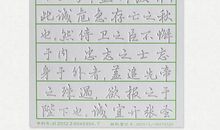 此诚危急存亡之秋
也然侍卫之臣不懈
于内，忠志之士忘
身于外者，盖追先帝
之殊遇，欲报之于
陛下也，诚宜开张圣